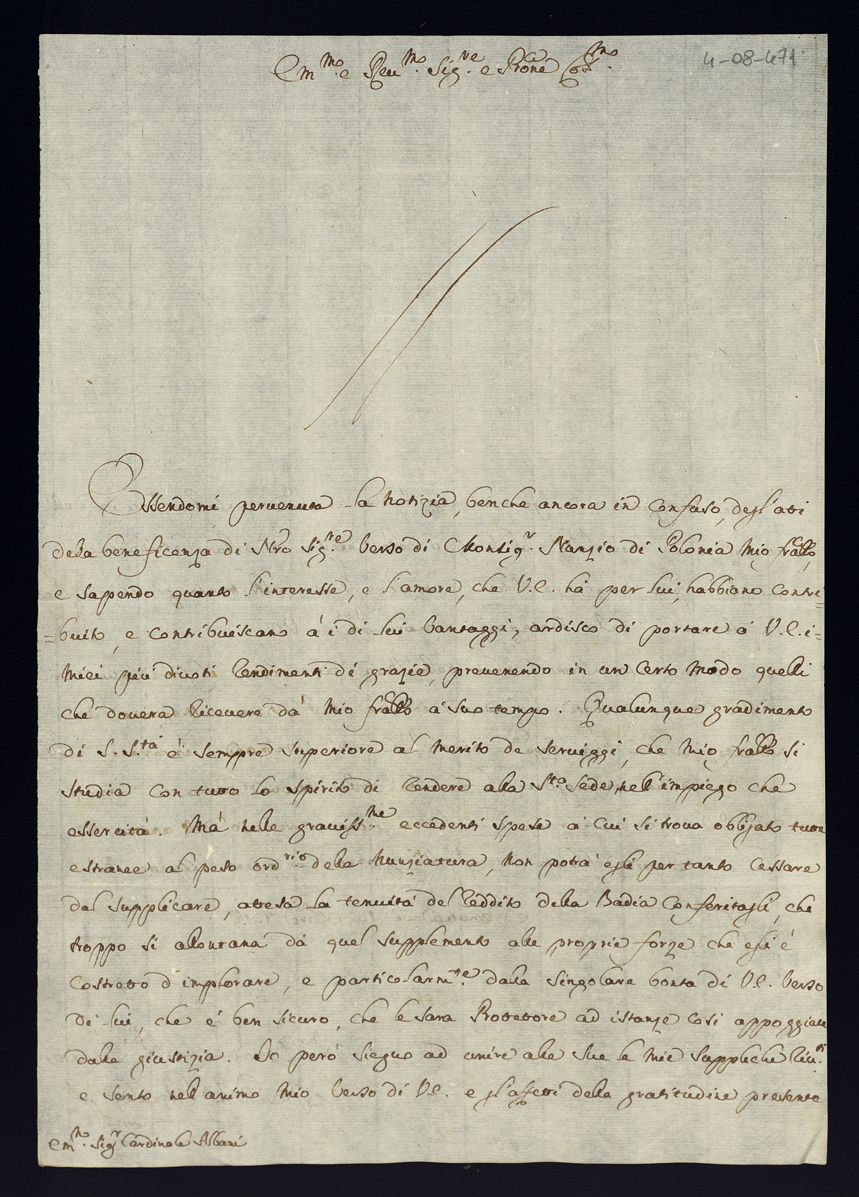 Em.mo e Reu.mo Sig.re e Prone Col.mo
4-08-471
Essendomi peruenuta la notizia, benche ancora in confuso, degl'atti
della beneficenza di Nro Sig.re verso di Monsig.r Nunzio di Polonia mio frallo,
e sapendo quanto l'interesse, e l'amore, che V.E. hà per lui, habbiano contri=
=buito, e contribuiscano à i di lui vantaggi, ardisco di portare à V.E. i
miei più diuoti rendimenti dé grazie, preuenendo in un certo modo quelli
che douerà riceuere dà mio frallo à suo tempo. Qualunque gradimento
di S. S.tà è sempre superiore al merito de seruiggi, che mio frallo si
studia con tutto lo spirito di rendere alla S.ta Sede, nell'impiego che
essercita. Mà nelle grauiss.me eccedenti spese à cui si troua obligato tutte
estranee al peso ord.rio della Nunziatura, non potrà egli per tanto cessare
dal supplicare, attesa la tenuità del reddito della Badia conferitagli, che
troppo si allontana dà quel supplemento alle proprie forze che egli è
costretto d'implorare, e particolarm.te dalla singolare bontà di V.E. verso
di lui, che è ben sicuro, che le sarà Protettore ad istanze cosi appoggiate
dalla giustizia. Io però sieguo ad unire alle sue le mie suppliche
e sento nell'animo mio verso di V.E. e gl'affetti della gratitudine presente
Em.mo Sig.r Cardinale Albani